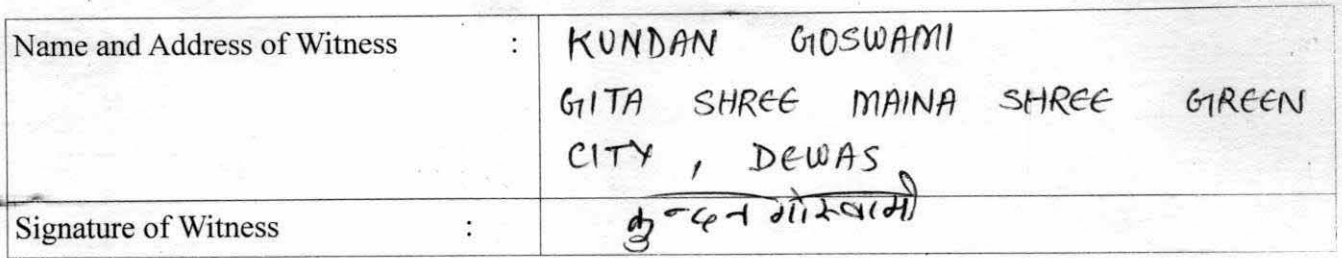 Name and Address of Witness : KUNDAN GOSWAMI
GITA SHREE MAINA SHREE GREEN
CITY , DEWAS
Signature of Witness : कुन्दन गोस्वामी